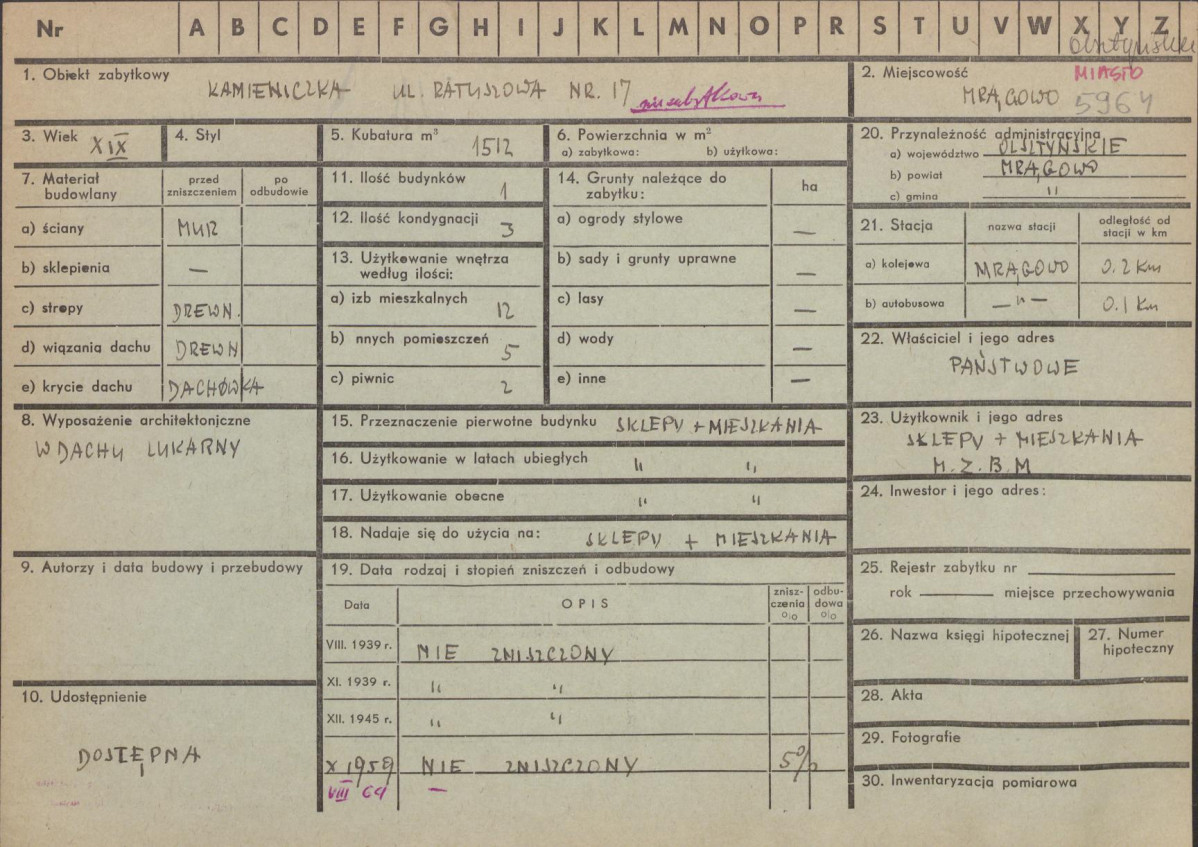 Nr A B C D E F G H I J K L M N O P R S T U V W X Y Z
olsztyńskie
1. Obiekt zabytkowy
KAMIENICZKA UL. RATUSZOWA NR. 17 niezabytkowa
2. Miejscowość MIASTO
MRĄGOWO 5964
3. Wiek XIX
4. Styl
5. Kubatura m³ 1512
6. Powierzchnia w m²
a) zabytkowa: b) użytkowa:
20. Przynależność administracyjna
a) województwo OLSZTYŃSKIE
b) powiat MRĄGOWO
c) gmina "
7. Materiał budowlany
przed zniszczeniem
po odbudowie
a) ściany MUR
b) sklepienia —
c) stropy DREWN.
d) wiązania dachu DREWN
e) krycie dachu DACHÓWKA
11. Ilość budynków 1
12. Ilość kondygnacji 3
13. Użytkowanie wnętrza
według ilości:
a) izb mieszkalnych 12
b) nnych pomieszczeń 5
c) piwnic 2
14. Grunty należące do
zabytku: ha
a) ogrody stylowe —
b) sady i grunty uprawne —
c) lasy —
d) wody —
e) inne —
21. Stacja
nazwa stacji
odległość od
stacji w km
a) kolejowa MRĄGOWO 0.2 Km
b) autobusowa —"— 0.1 Km
22. Właściciel i jego adres
PAŃSTWOWE
8. Wyposażenie architektoniczne
W DACHU LUKARNY
15. Przeznaczenie pierwotne budynku SKLEPY + MIESZKANIA
16. Użytkowanie w latach ubiegłych " "
17. Użytkowanie obecne " "
18. Nadaje się do użycia na: SKLEPY + MIESZKANIA
23. Użytkownik i jego adres
SKLEPY + MIESZKANIA
M. Z. B. M
24. Inwestor i jego adres:
9. Autorzy i data budowy i przebudowy
19. Data rodzaj i stopień zniszczeń i odbudowy
Data OPIS
znisz-
czenia
%
odbu-
dowa
%
VIII. 1939 r. NIE ZNISZCZONY
XI. 1939 r. " "
XII. 1945 r. " "
X 1959 NIE ZNISZCZONY 5%
VIII 64 —
25. Rejestr zabytku nr
rok miejsce przechowywania
26. Nazwa księgi hipotecznej
27. Numer
hipoteczny
28. Akta
29. Fotografie
30. Inwentaryzacja pomiarowa
10. Udostępnienie
DOSTĘPNA